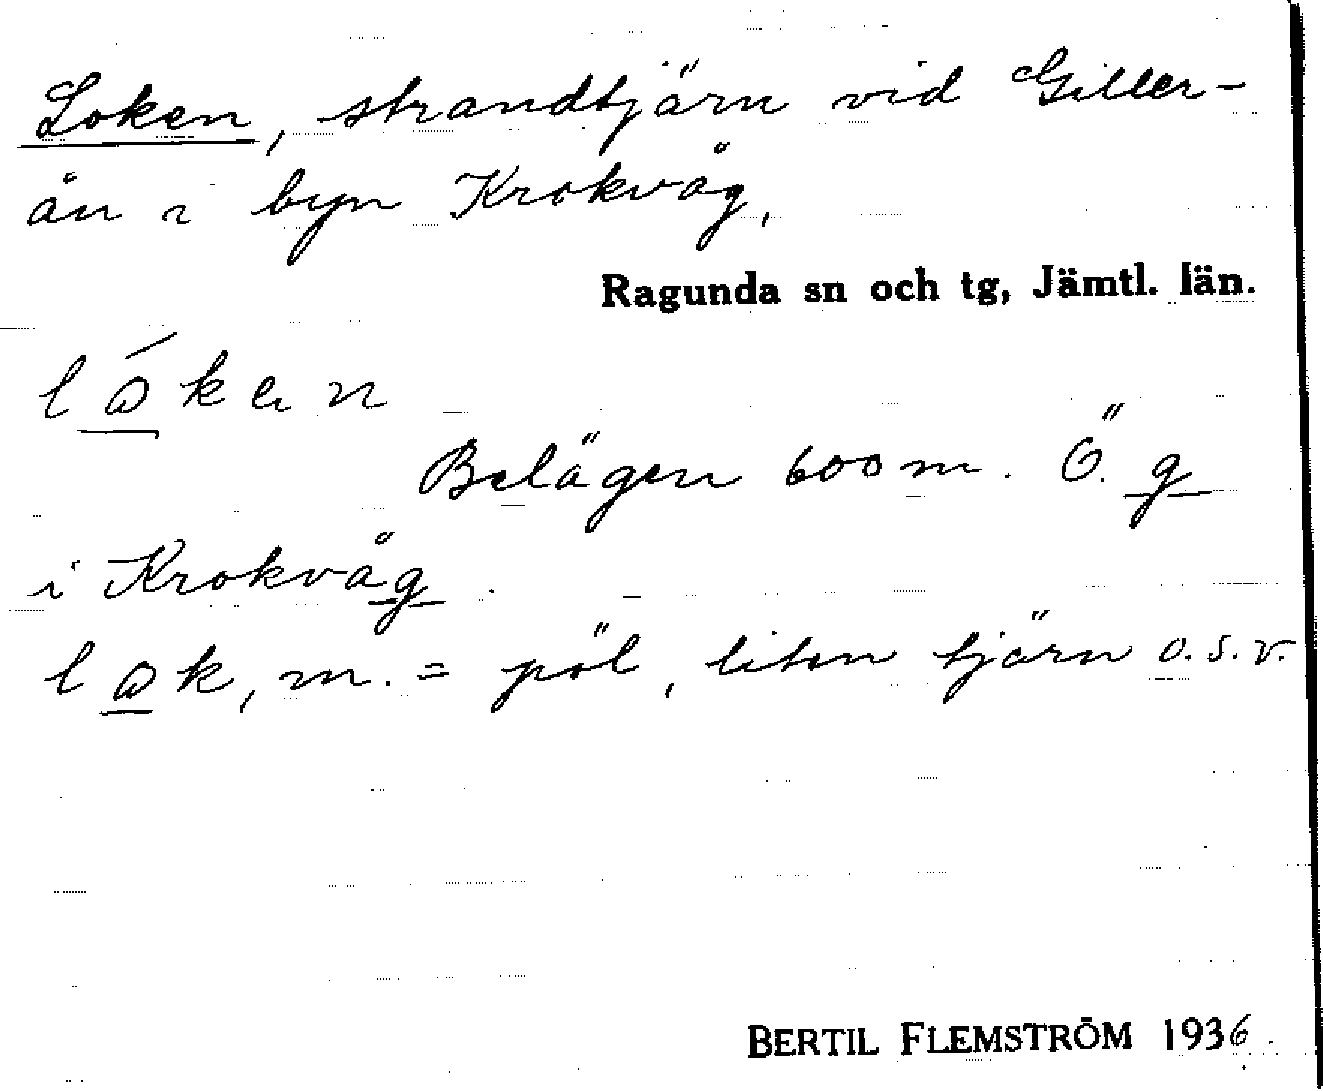 Loken, strandtjärn vid Giller-
ån i byn Krokvåg,
Ragunda sn och tg, Jämtl. län.
lóken
Belägen 600 m. Ö. g
i Krokvåg.
lok, m. = pöl, liten tjärn o.s.v.
BERTIL FLEMSTRÖM 1936